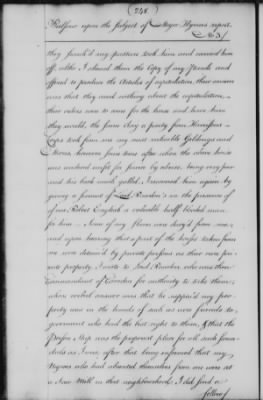 (248)
Petition upon the subject of Major Hyrnes report.
No. 3/
they found my partner took him and carried him
off, altho I shewed them the Copy of my Parole and
offered to produce the Articles of capitulation, their answer
was that they knew nothing about the capitulation,
their orders were to come for the horse and have him
they would, the same day a party from Herriffours
Corps took from me my most valuable Geldings and
Horses, however some time after when the above horse
was rendered unfit for service by abuse, being very poor
and his back much galled, I recovered him again by
giving a servant of Lord Rawdon's in the presence of
of one Robert English a valuable half blooded mare
for him - Some of my slaves were hired from me,
and upon hearing that a part of the horses taken from
me were detained by private persons as their own pri-
vate property I wrote to Lord Rawdon who was then
Commandant of Camden for authority to take them,
whose verbal answer was that he supposed my pro-
perty was in the hands of such as were friends to go-
vernment who had the best right to them, & that the
Prison Ship was the properest place for all such Scoun-
drels as I was, after that being informed that my
Negroes who had absented themselves from me were at
a Saw Mill in that neighbourhood I did send a
fellow/